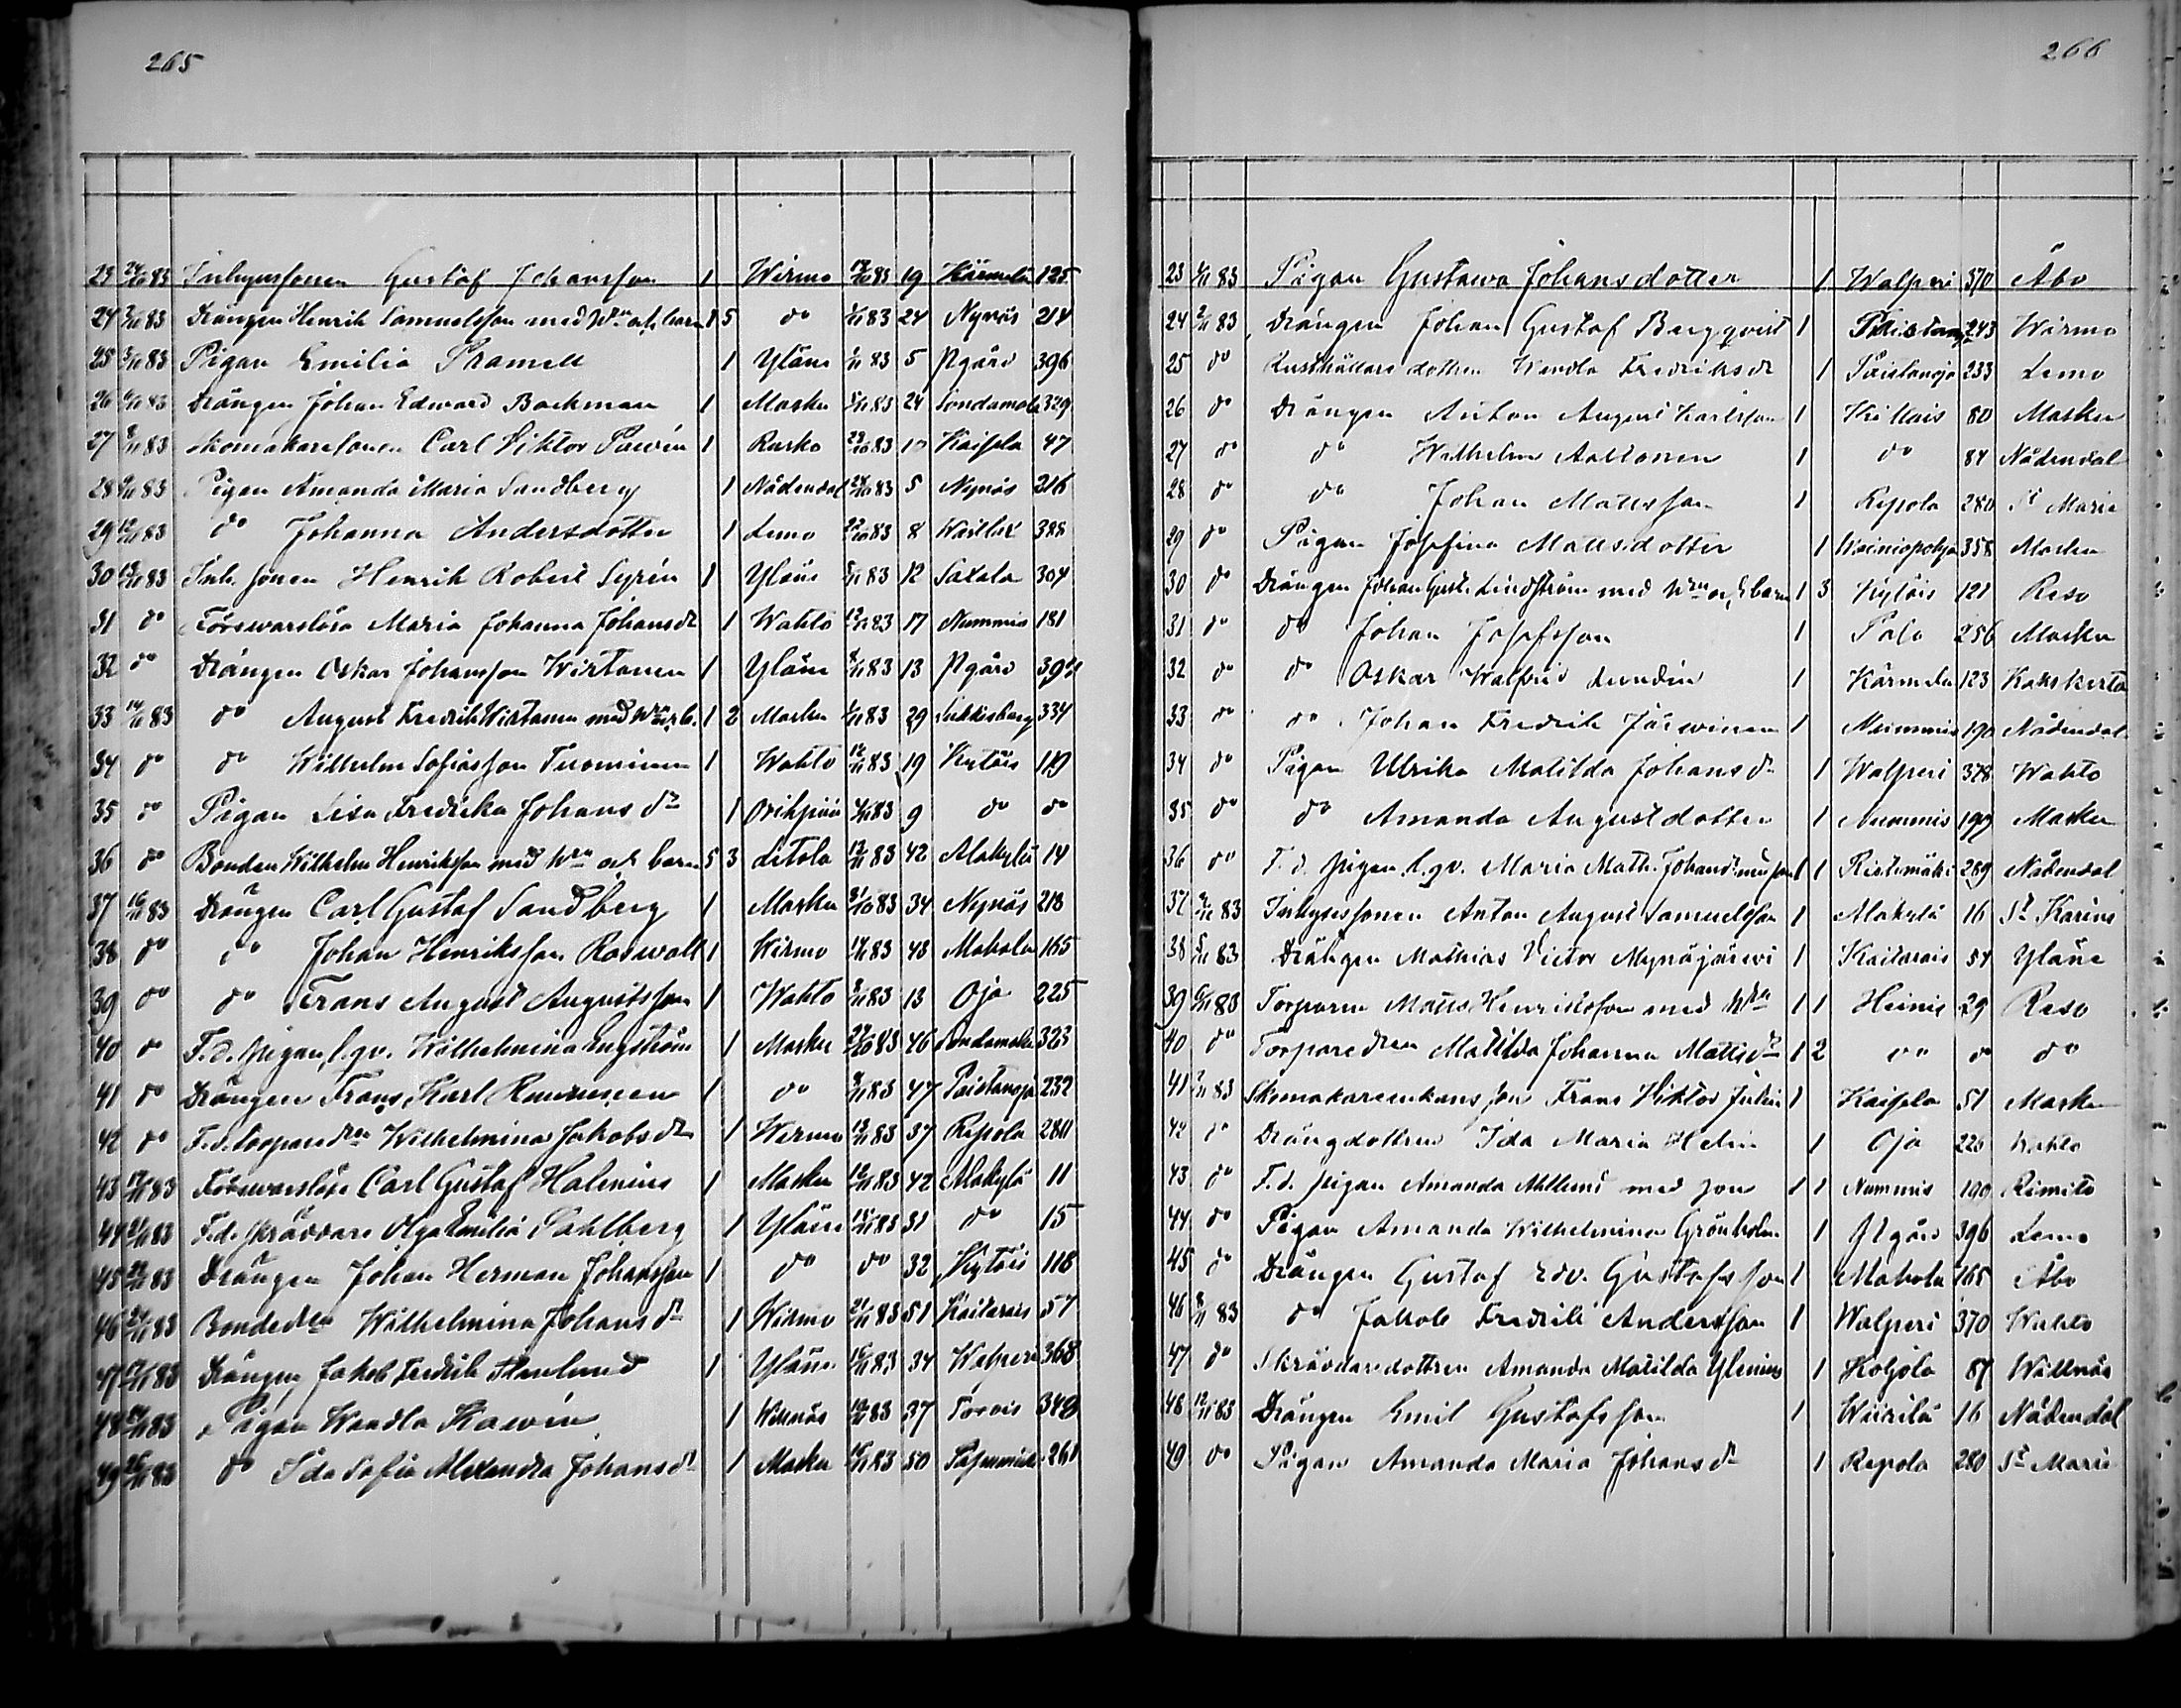 265
23 24/10 83 Inhysessonen Gustaf Johansson 1 Wirmo 17/10 83 19 Kärmelä 125
24 3/11 83 Drängen Henrik Samuelsson med hru och barn 1 5 do 3/11 83 24 Nynäs 214
25 3/11 83 Pigan Emilia Pramell 1 Yläne 1/11 83 5 Pgård 396
26 6/11 83 Drängen Johan Edward Backman 1 Masku 5/11 83 24 329
27 8/11 83 Skomakaresonen Carl Viktor Pawén 1 Rusko 29/10 83 10 Kaisela 47
28 9/11 83 Pigan Amanda Maria Sandberg 1 Nådendal 24/10 83 5 Nynäs 216
29 12/11 83 do Johanna Andersdotter 1 Lemo 22/10 83 8 388
30 13/11 83 Inh. sonen Henrik Robert Syrén 1 Yläne 5/11 83 12 Saxala 304
31 do Försvarslösa Maria Johanna Johansdr 1 Wahto 12/11 83 17 Nummis 181
32 do Drängen Oskar Johansson Wirtanen 1 Yläne 8/11 83 13 Pgård
33 14/11 83 do August Fredrik Wirtanen med 1 2 Masku 83 29 334
34 do do Wilhelm Sofiasson Tuominen 1 Wahto 12/11 83 19 Kytöis 119
35 do Pigan Lisa Fredrika Johansdr 1 Orihpää 4/11 83 9 do do
36 do Bonden Wilhelm Henriksson med hru och barn 5 3 Litola 12/11 83 42 Alakylä 14
37 16/11 83 Drängen Carl Gustaf Sandberg 1 Masku 31/10 83 34 Nynäs 218
38 do do Johan Henriksson Roswall 1 Wirmo 83 43 Mahola 165
39 do do Frans August Augustsson 1 Wahto 8/11 83 13 Oja 225
40 do F.d. pigan, l.qv. Wilhelmina Engström 1 Masku 29/10 83 46 323
41 do Drängen Frans Karl 1 do 9/11 83 47 Paistanoja 232
42 do F.d. torparedrn Wilhelmina Jakobsdr 1 Wirmo 13/11 83 37 Repola 280
43 17/11 83 Försvarslöse Carl Gustaf Halenius 1 Masku 83 42 Alakylä 11
44 21/11 83 F.d. skräddare Olga Emilia Sahlberg 1 Yläne 83 31 do 15
45 83 Drängen Johan Herman Johansson 1 do do 32 Kytöis 118
46 24/11 83 Bondedrn Wilhelmina Johansdr 1 Wirmo 21/11 83 51 Kaitarais 57
47 83 Drängen Jakob Fredrik 1 Yläne 83 34 Walperi 368
48 83 Pigan Wendla Kawén 1 Willnäs 83 37 Torois 348
49 83 do Ida Sofia Alexandra Johansdr 1 Masku 83 50 261
266
23 1/11 83 Pigan Gustawa Johansdotter 1 Walperi 370 Åbo
24 2/11 83 Drängen Johan Gustaf Bergqvist 1 243 Wirmo
25 do Rusthållaredottren Wendla Fredriksdr 1 Paistanoja 233 Lemo
26 do Drängen Anton August Karlsson 1 Killais 80 Masku
27 do do Wilhelm Aaltonen 1 do 84 Nådendal
28 do do Johan Mattsson 1 Repola 280 St Marie
29 do Pigan Josefina Mattsdotter 1 Wainionpohja 358 Masku
30 do Drängen Johan Gust. Lindström med hru och barn 1 3 Kytöis 121 Reso
31 do do Johan Josefsson 1 Palo 256 Masku
32 do do Oskar Walfrid Lundén 1 Kärmelä 123 Kakskerta
33 do do Johan Fredrik Järwinen 1 Nummis 190 Nådendal
34 do Pigan Ulrika Matilda Johansdr 1 Walperi 378 Wahto
35 do do Amanda Augustdotter 1 Nummis 199 Masku
36 do F.d. pigan l.qv. Maria Math. Johansdr med son 1 1 Ristimäki 289 Nådendal
37 83 Inhysessonen Anton August Samuelsson 1 Alakylä 16 St Karins
38 5/11 83 Drängen Mathias Victor Mynäjärwi 1 Kaitarais 54 Yläne
39 6/11 83 Torparen Matts Henriksson med hru 1 1 Heinis 29 Reso
40 do Torparedrn Matilda Johanna Mattsdr 1 2 do do do
41 7/11 83 Skomakareenkans son Frans Viktor Julin 1 Kaisela 51 Masku
42 do Drängdottren Ida Maria Helin 1 Oja 220 Wahto
43 do F.d. pigan Amanda med son 1 1 Nummis 190 Rimito
44 do Pigan Amanda Wilhelmina Grönholm 1 Pgård 396 Lemo
45 do Drängen Gustaf Edv. Gustafsson 1 Mahola 165 Åbo
46 8/11 83 do Jakob Fredrik Andersson 1 Walperi 370 Wahto
47 do Skräddaredottren Amanda Matilda Ylenius 1 Koljola 87 Willnäs
48 12/11 83 Drängen Emil Gustafsson 1 Wiirilä 16 Nådendal
49 do Pigan Amanda Maria Johansdr 1 Repola 280 St Marie